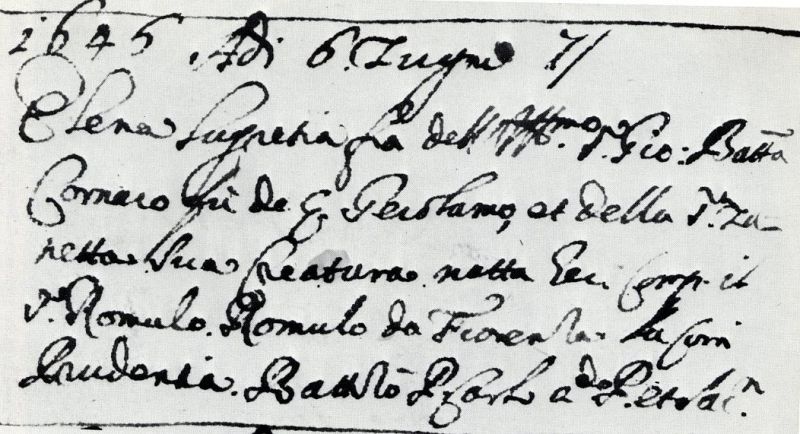 1646 Adi 6 Zugno
Elena Lugretia fia dell Sr. Gio: Batta
Cornaro fù de Gerolamo, et della Sa. Za-
netta sua Creatura natta Comp. il
Sr. Romulo Romulo da Fiorenza la Com
Prudentia. Battzò P. Carlo